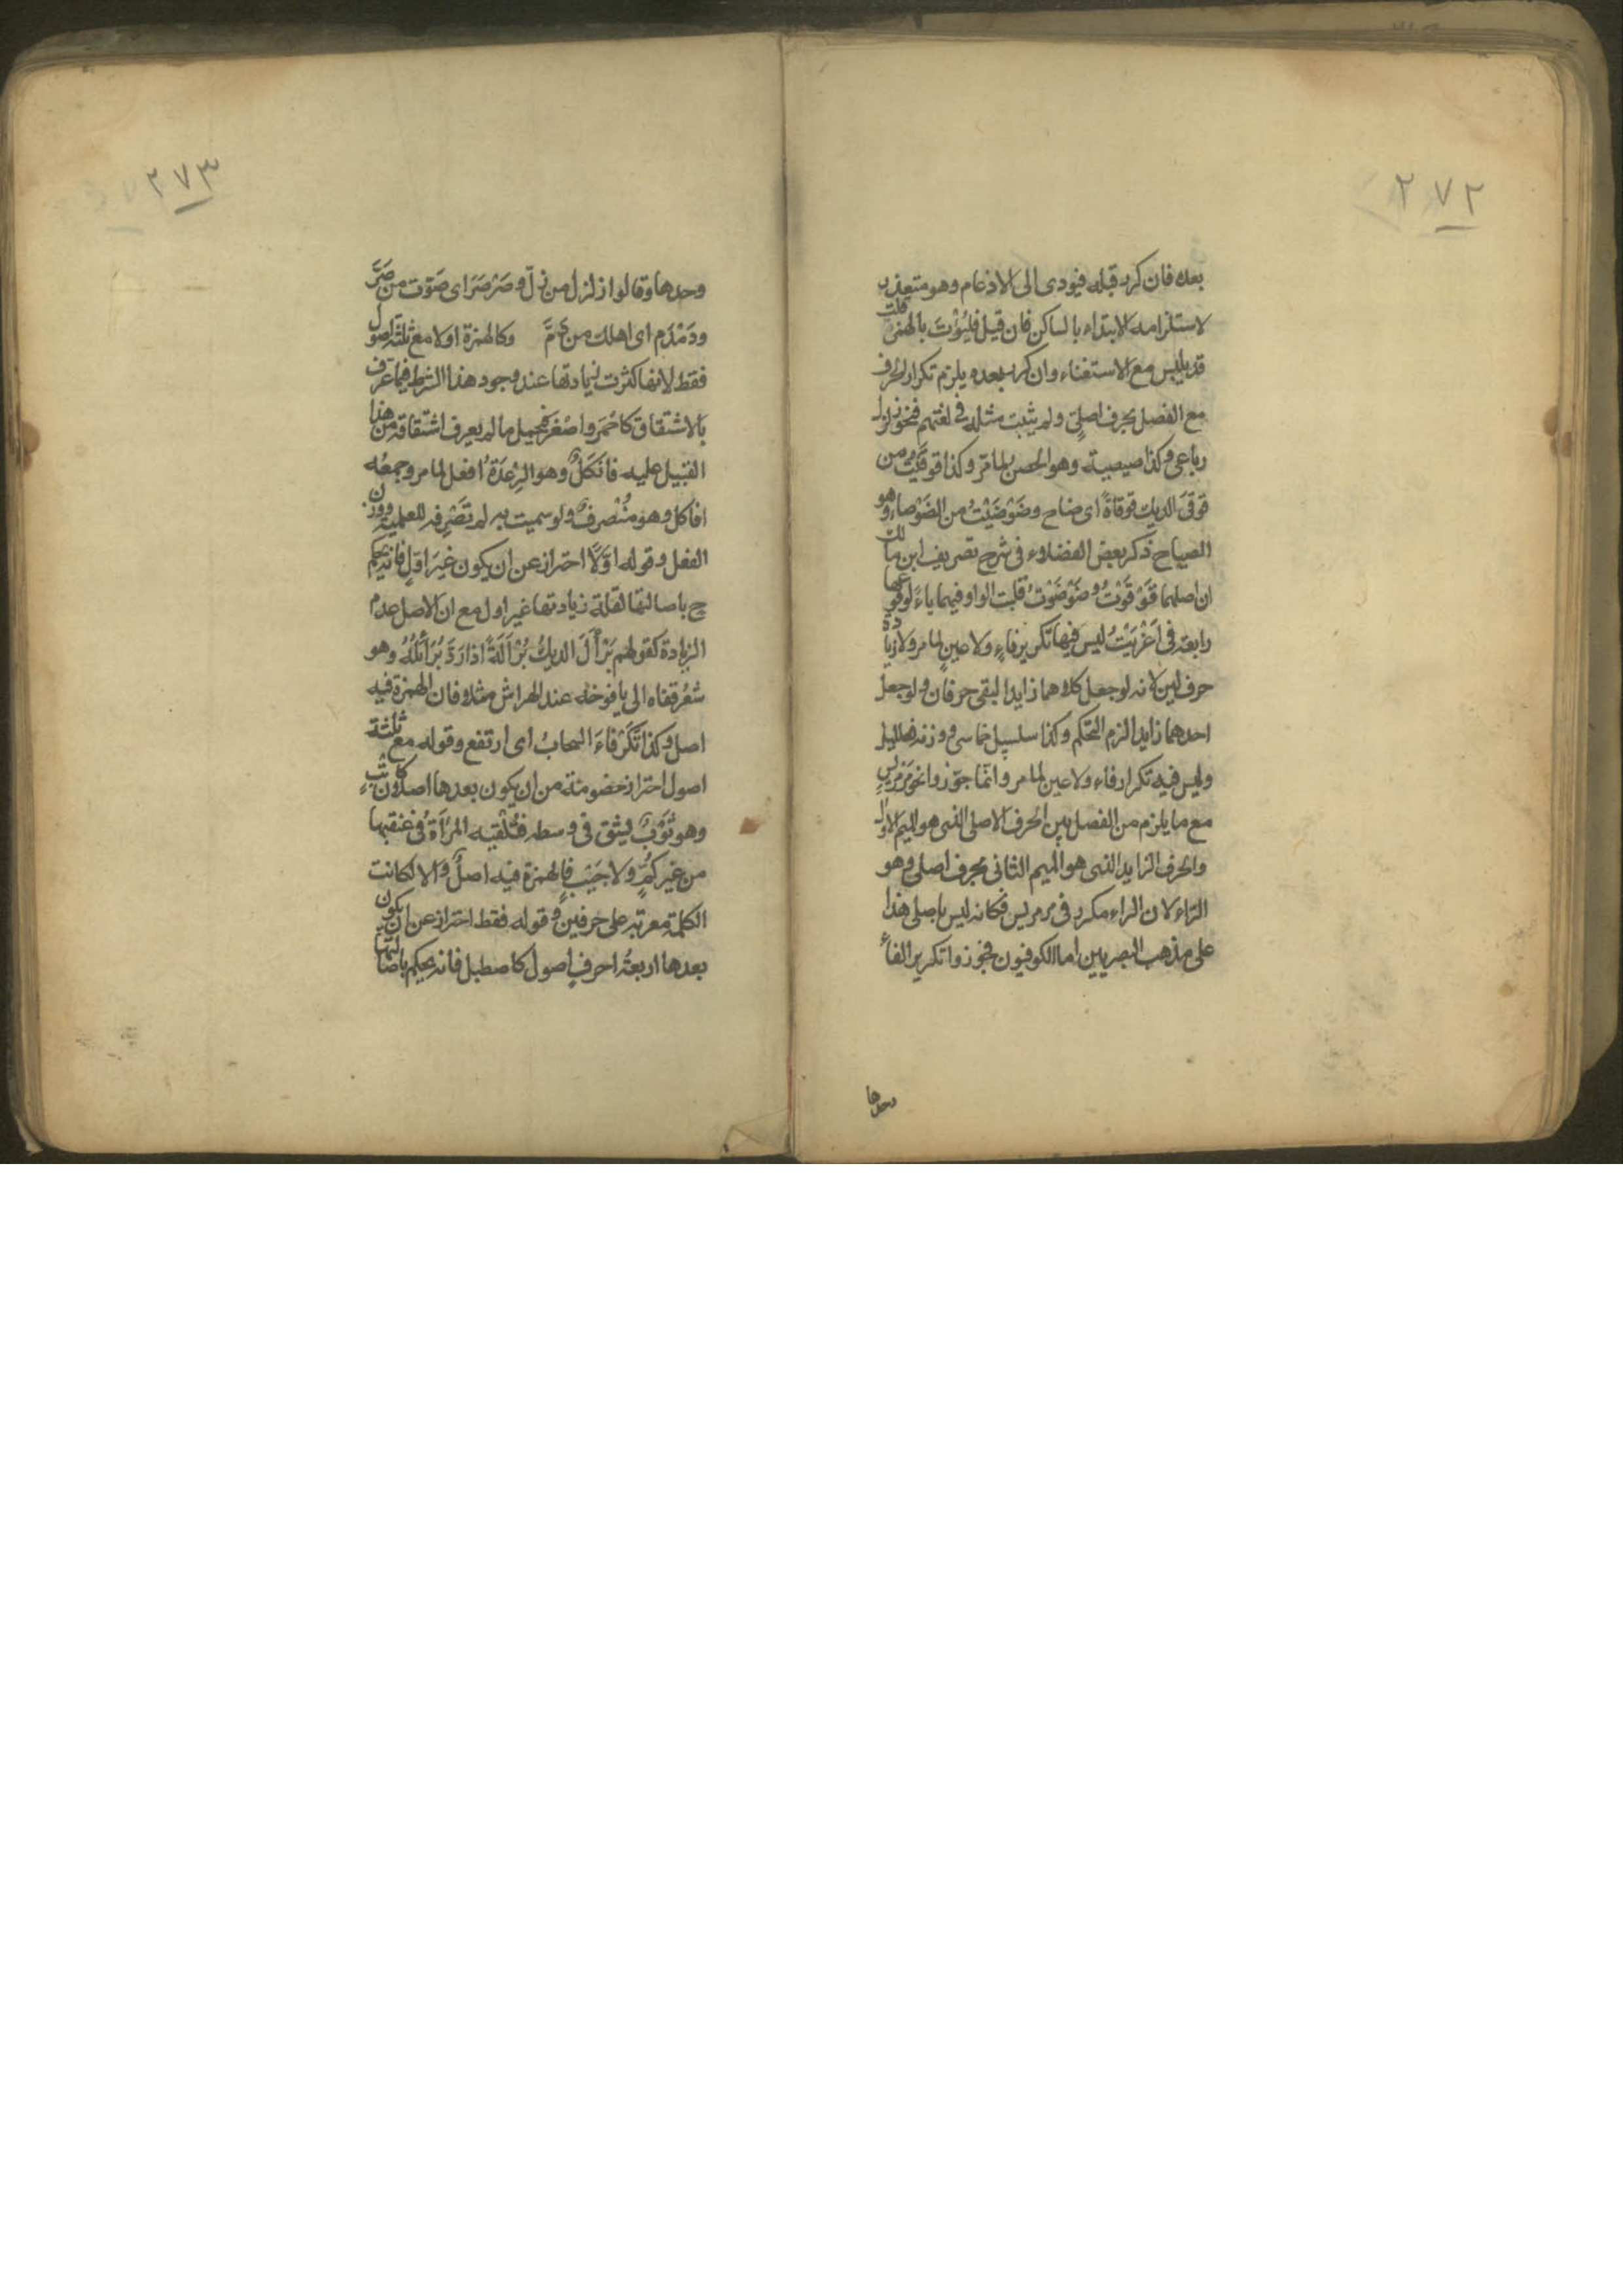 ٢٧٢
بعده فان كرر قبله فيودى الى الادغام وهو متعذر
لاستلزامه الابتداء بالساكن فان قيل فليُؤْتَ بالهمزة قلت
قد يلبس مع الاستغناء وان كرر بعده يلزم تكرار الحرف
مع الفصل بحرف اصلىّ ولم يثبت مثله فى لغتهم فنحو زلزل
رباعى وكذا صيصية وهو الحصن لما مرّ وكذا قوقَيْتُ من
قوقَى الديك قوقاةً اى صاح وضَوْضَيْتُ من الضَوْضاء وهو
الصياح ذكر بعض الفضلاء فى شرح تصريف ابن مالك
ان اصلهما قَوْقَوْتُ وضَوْضَوْتُ قلبت الواو فيهما ياءً لوقوعها
رابعة فى اَغْزَيْتُ ليس فيها تكرير فاءٍ ولا عينٍ لما مر ولا زيادة
حرف لين لانه لو جعل كلاهما زايدا لبقى حرفان ولو جعل
احدهما زايدا لزم التحكم وكذا سلسبيل خماسى ووزنه فعلليل
وليس فيه تكرار فاء ولا عين لما مر وانّما جوّزوا نحو مَرْمَرِيسٍ
مع ما يلزم من الفصل بين الحرف الاصلى الذى هو الميم الاول
والحرف الزايد الذى هو الميم الثانى بحرف اصلى وهو
الرّاء لان الراء مكرر فى مرمريس فكانه ليس باصلى هذا
على مذهب البصريين اما الكوفيون فجوزوا تكرير الفاء
وحدها
٢٧٣
وحدها وقالوا زلزل من زلّ وصَرْصَرَ اى صَوّت من صَرَّ
ودَمْدَم اى اهلك من دَمَّ وكالهمزة اولا مع ثلثة اصول
فقط لانها كثرت زيادتها عند وجود هذا الشرط فيما عرف
بالاشتقاق كاحْمَر واصْغَر فحمل ما لم يعرف اشتقاقه من هذا
القبيل عليه فافكَلٌ وهو الرِعْدَةُ افعل لما مر وجمعُه
افاكل وهو مُنْصرفٌ ولو سميت به لم تصْرِفه للعلمية ووزن
الفعل وقوله اوّلًا احتراز عن ان يكون غيَر اوّلٍ فانه يحكم
ح باصالتها لقلة زيادتها غير اول مع ان الاصل عدم
الزيادة كقولهم بَرْأَلَ الديكُ بُرْأَلَةً اذا رَدَّ بُرَائِلَهُ وهو
شَعْرُ قفاه الى يافوخه عند الهراش مثلا فان الهمزة فيه
اصل وكذا تَكَرْفاءَ السحابُ اى ارتفع وقوله مع ثلثة
اصول احتراز من ان يكون بعدها اصلان كاتْبٍ
وهو ثَوْبٌ يشق فى وسطه فتُلْقيه المرْأَةُ فى عنقها
من غير كُمٍّ ولا جَيْبٍ فالهمزة فيه اصلٌ والا لكانت
الكلمة معربة على حرفين وقوله فقط احتراز عن ان يكون
بعدها اربعةُ احرفٍ اصول كاصطبل فانه يحكم باصالتها